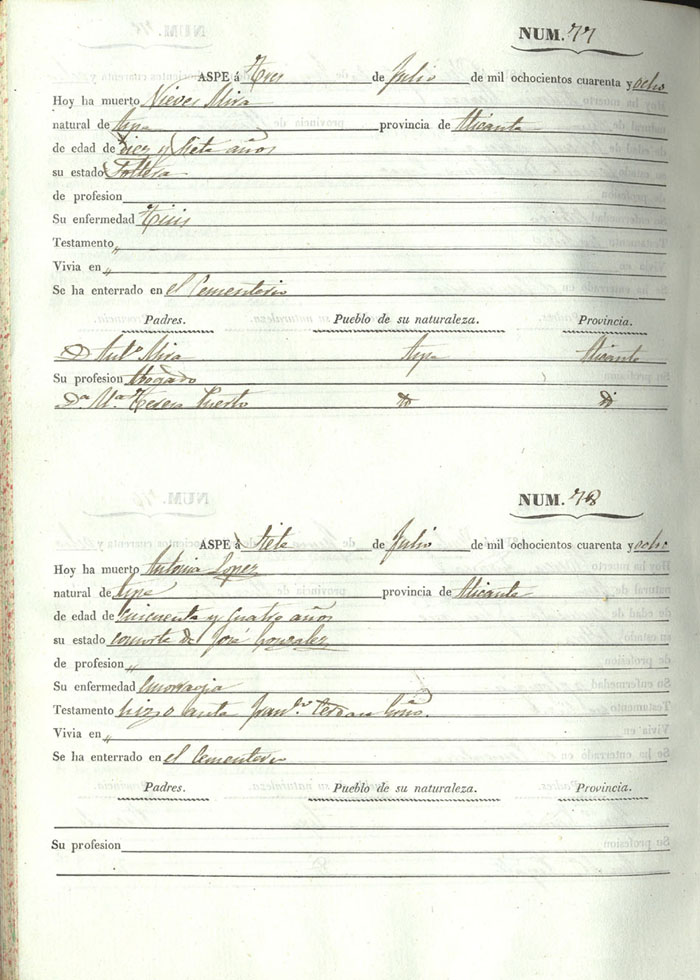 NUM. 77
ASPE á Tres de Julio de mil ochocientos cuarenta y ocho
Hoy ha muerto Nieves Mira
natural de Aspe provincia de Alicante
de edad de diez y siete años
su estado Soltera
de profesion
Su enfermedad Tisis
Testamento „
Vivia en „
Se ha enterrado en el Cementerio
Padres. Pueblo de su naturaleza. Provincia.
D. Antº Mira Aspe Alicante
Su profesion Abogado
Dª Mª Teresa Puerto
NUM. 78
ASPE á Siete de Julio de mil ochocientos cuarenta y ocho
Hoy ha muerto Antonia Lopez
natural de Aspe provincia de Alicante
de edad de cincuenta y cuatro años
su estado consorte de José Gonzalez
de profesion „
Su enfermedad
Testamento hizo ante Franco.
Vivia en „
Se ha enterrado en el Cementerio
Padres. Pueblo de su naturaleza. Provincia.
Su profesion